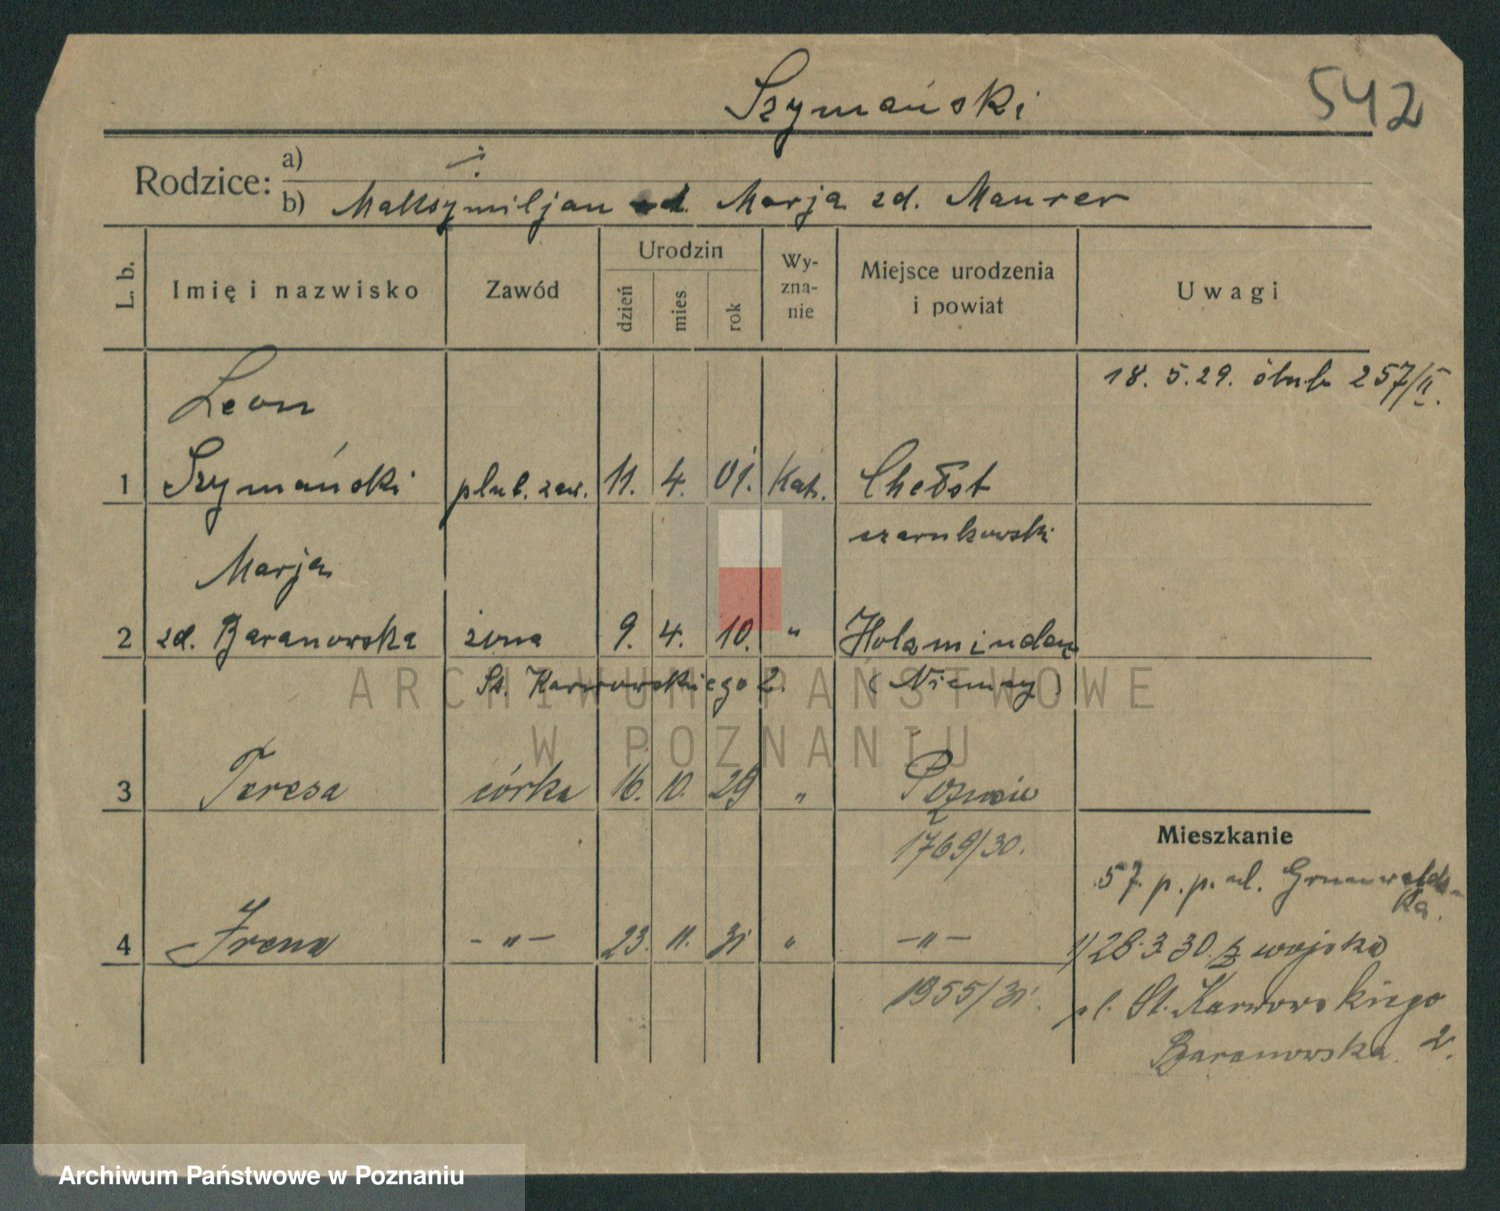 Szymański 542
Rodzice: a)
b) Maksymiljan Marja zd. Maurer
L. b. Imię i nazwisko Zawód Urodzin dzień mies. rok Wyznanie Miejsce urodzenia i powiat Uwagi
18. 5. 29. ślub 257/II.
Leon
1 Szymański plut. zaw. 11. 4. 01. Kat. Chełst
czarnkowski
Marja
2 zd. Baranowska żona 9. 4. 10. " Holzminden
St. Karwowskiego 2. (Niemcy)
3 Teresa córka 16. 10. 29 " Poznań
1769/30.
Mieszkanie
57 p. p. ul. Grunwaldzka.
4 Irena -"- 23. 11. 31 " -"-
1) 28.3.30. z wojska
1955/31.
ul. St. Karwowskiego
Baranowska 2.
ARCHIWUM PAŃSTWOWE
W POZNANIU
Archiwum Państwowe w Poznaniu